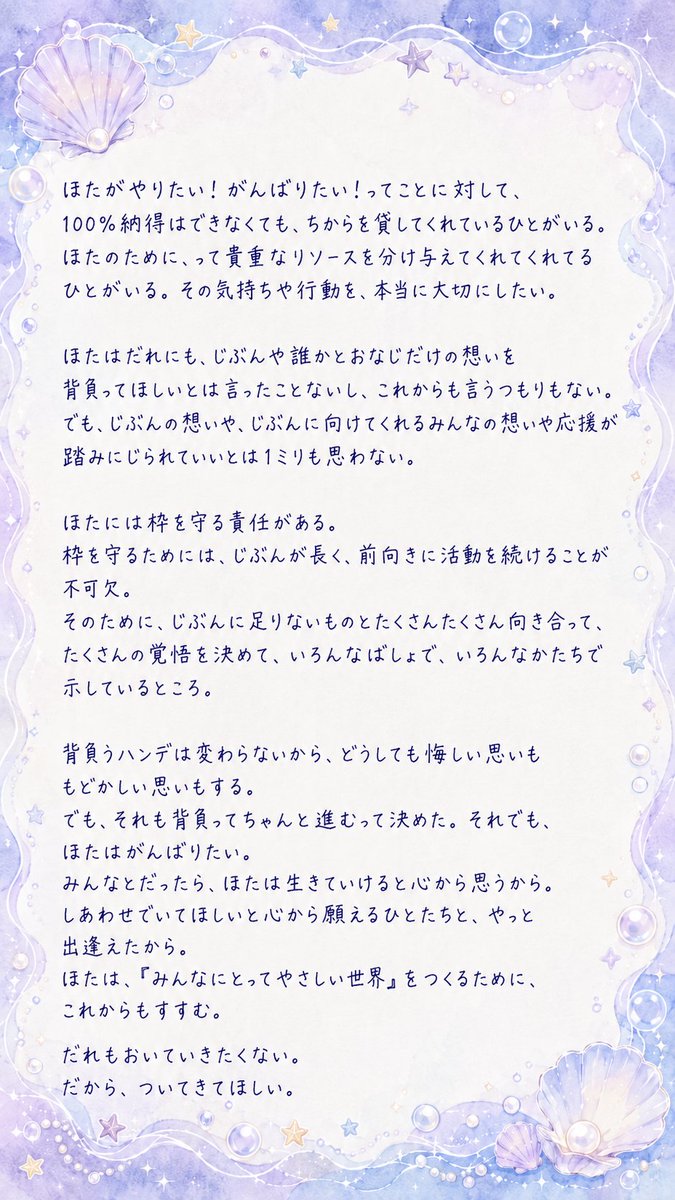 ほたがやりたい！がんばりたい！ってことに対して、
100%納得はできなくても、ちからを貸してくれているひとがいる。
ほたのために、って貴重なリソースを分け与えてくれてくれてる
ひとがいる。その気持ちや行動を、本当に大切にしたい。
ほたはだれにも、じぶんや誰かとおなじだけの想いを
背負ってほしいとは言ったことないし、これからも言うつもりもない。
でも、じぶんの想いや、じぶんに向けてくれるみんなの想いや応援が
踏みにじられていいとは1ミリも思わない。
ほたには枠を守る責任がある。
枠を守るためには、じぶんが長く、前向きに活動を続けることが
不可欠。
そのために、じぶんに足りないものとたくさんたくさん向き合って、
たくさんの覚悟を決めて、いろんなばしょで、いろんなかたちで
示しているところ。
背負うハンデは変わらないから、どうしても悔しい思いも
もどかしい思いもする。
でも、それも背負ってちゃんと進むって決めた。それでも、
ほたはがんばりたい。
みんなとだったら、ほたは生きていけると心から思うから。
しあわせでいてほしいと心から願えるひとたちと、やっと
出逢えたから。
ほたは、『みんなにとってやさしい世界』をつくるために、
これからもすすむ。
だれもおいていきたくない。
だから、ついてきてほしい。